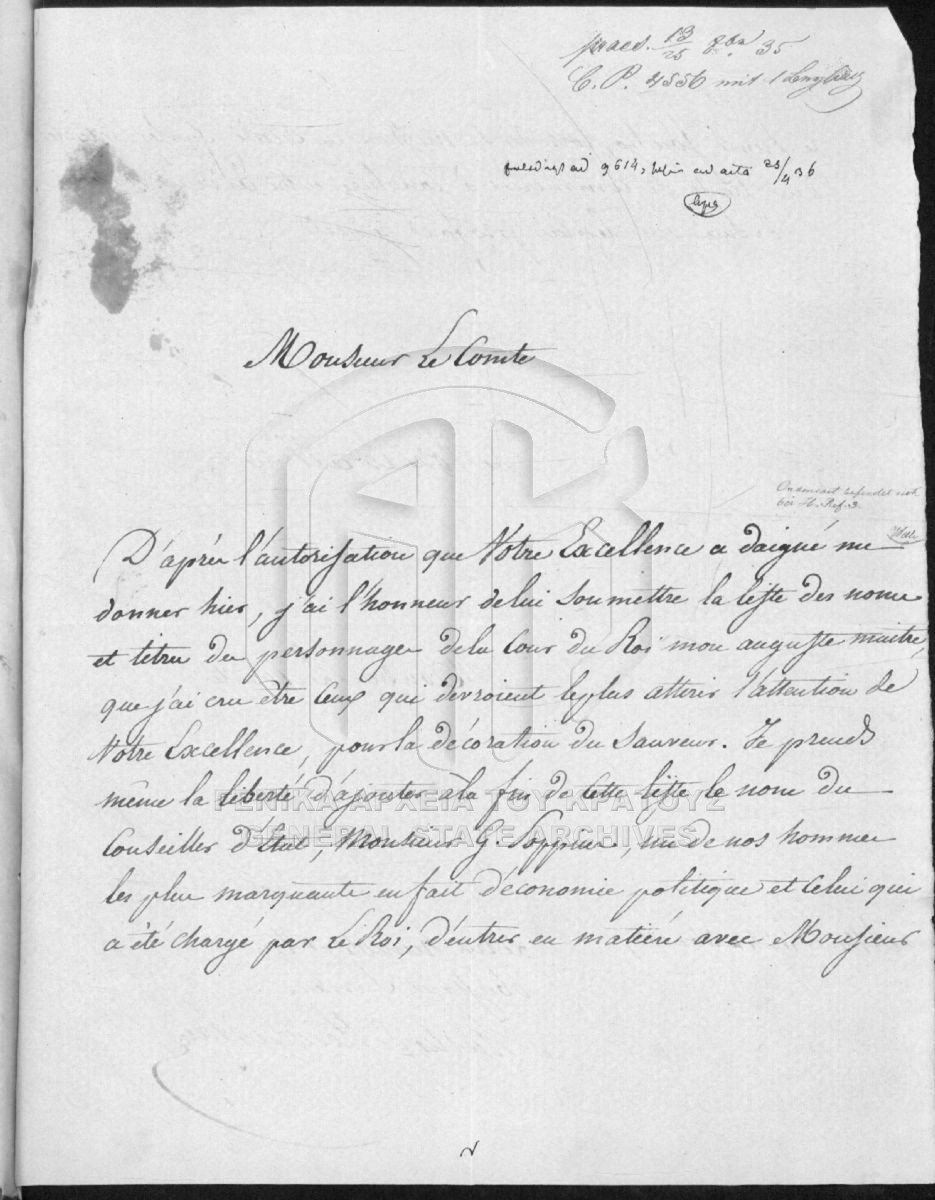 praes. 13/25 8bre 35
C. P. 4556 mit 1
ad 9614, ad acta 23/4 36
Monsieur Le Comte
befindet sich
bei
D'après l'autorisation que Votre Excellence a daigné me
donner hier, j'ai l'honneur de lui soumettre la liste des noms
et titres des personnages de la Cour du Roi mon auguste maitre,
que j'ai cru être Ceux qui devroient le plus attirer l'attention de
Votre Excellence, pour la décoration du Sauveur. Je prends
même la liberté d'ajouter à la fin de Cette liste le nom du
Conseiller d'Etat, Monsieur G. un de nos hommes
les plus marquants en fait d'économie politique et Celui qui
a été chargé par Le Roi, d'entrer en matière avec Monsieur
ΓΕΝΙΚΑ ΑΡΧΕΙΑ ΤΟΥ ΚΡΑΤΟΥΣ
GENERAL STATE ARCHIVES